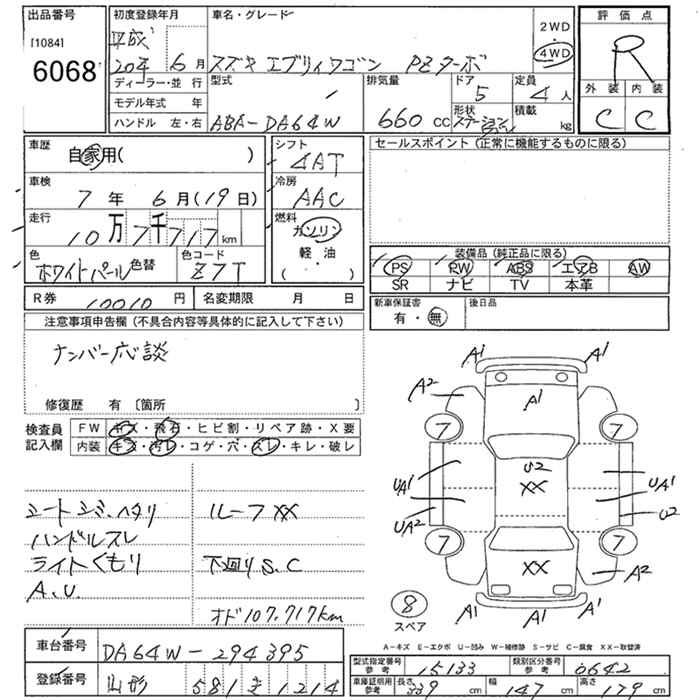 出品番号 初度登録年月 車名・グレード 2WD 評価点
[1084] 平成 4WD
6068 20年 6月 スズキ エブリィワゴン PZターボ R
ディーラー・並行 型式 排気量 ドア 5 定員 4人 外装 内装
モデル年式 年 形状 積載 C C
ハンドル 左・右 ABA-DA64W 660 CC ステーションワゴン kg
車歴 自家用( ) シフト 4AT セールスポイント(正常に機能するものに限る)
車検 7年 6月(19日) 冷房 AAC
走行 10万7千717km 燃料 ガソリン
軽・油
( )
色 ホワイトパール 色替 色コード Z7T
装備品(純正品に限る)
PS PW ABS エアB AW
SR ナビ TV 本革
R券 10010円 名変期限 月 日
新車保証書 有・無 後日品
注意事項申告欄(不具合内容等具体的に記入して下さい)
ナンバー応談
修復歴 有 〔箇所 〕
検査員 FW キズ・飛石・ヒビ割・リペア跡・X要
記入欄 内装 キズ・汚レ・コゲ・穴・スレ・キレ・破レ
シートシミ、ヘタリ ルーフXX
ハンドルスレ
ライトくもり 下回りS、C
A、U
オド107,717km
A1 A1
A2 A1
7 7
U2
UA1 XX UA1
UA2 U2
7 7
XX A2
8 A1 A1 A1
スペア
A-キズ E-エクボ U-凹み W-補修跡 S-サビ C-腐食 XX-取替済
車台番号 DA64W-294395
登録番号 山形 581 き 1214
型式指定番号 参考 15133 類別区分番号 参考 0642
車庫証明用 参考 長さ 339cm 幅 147cm 高さ 179cm